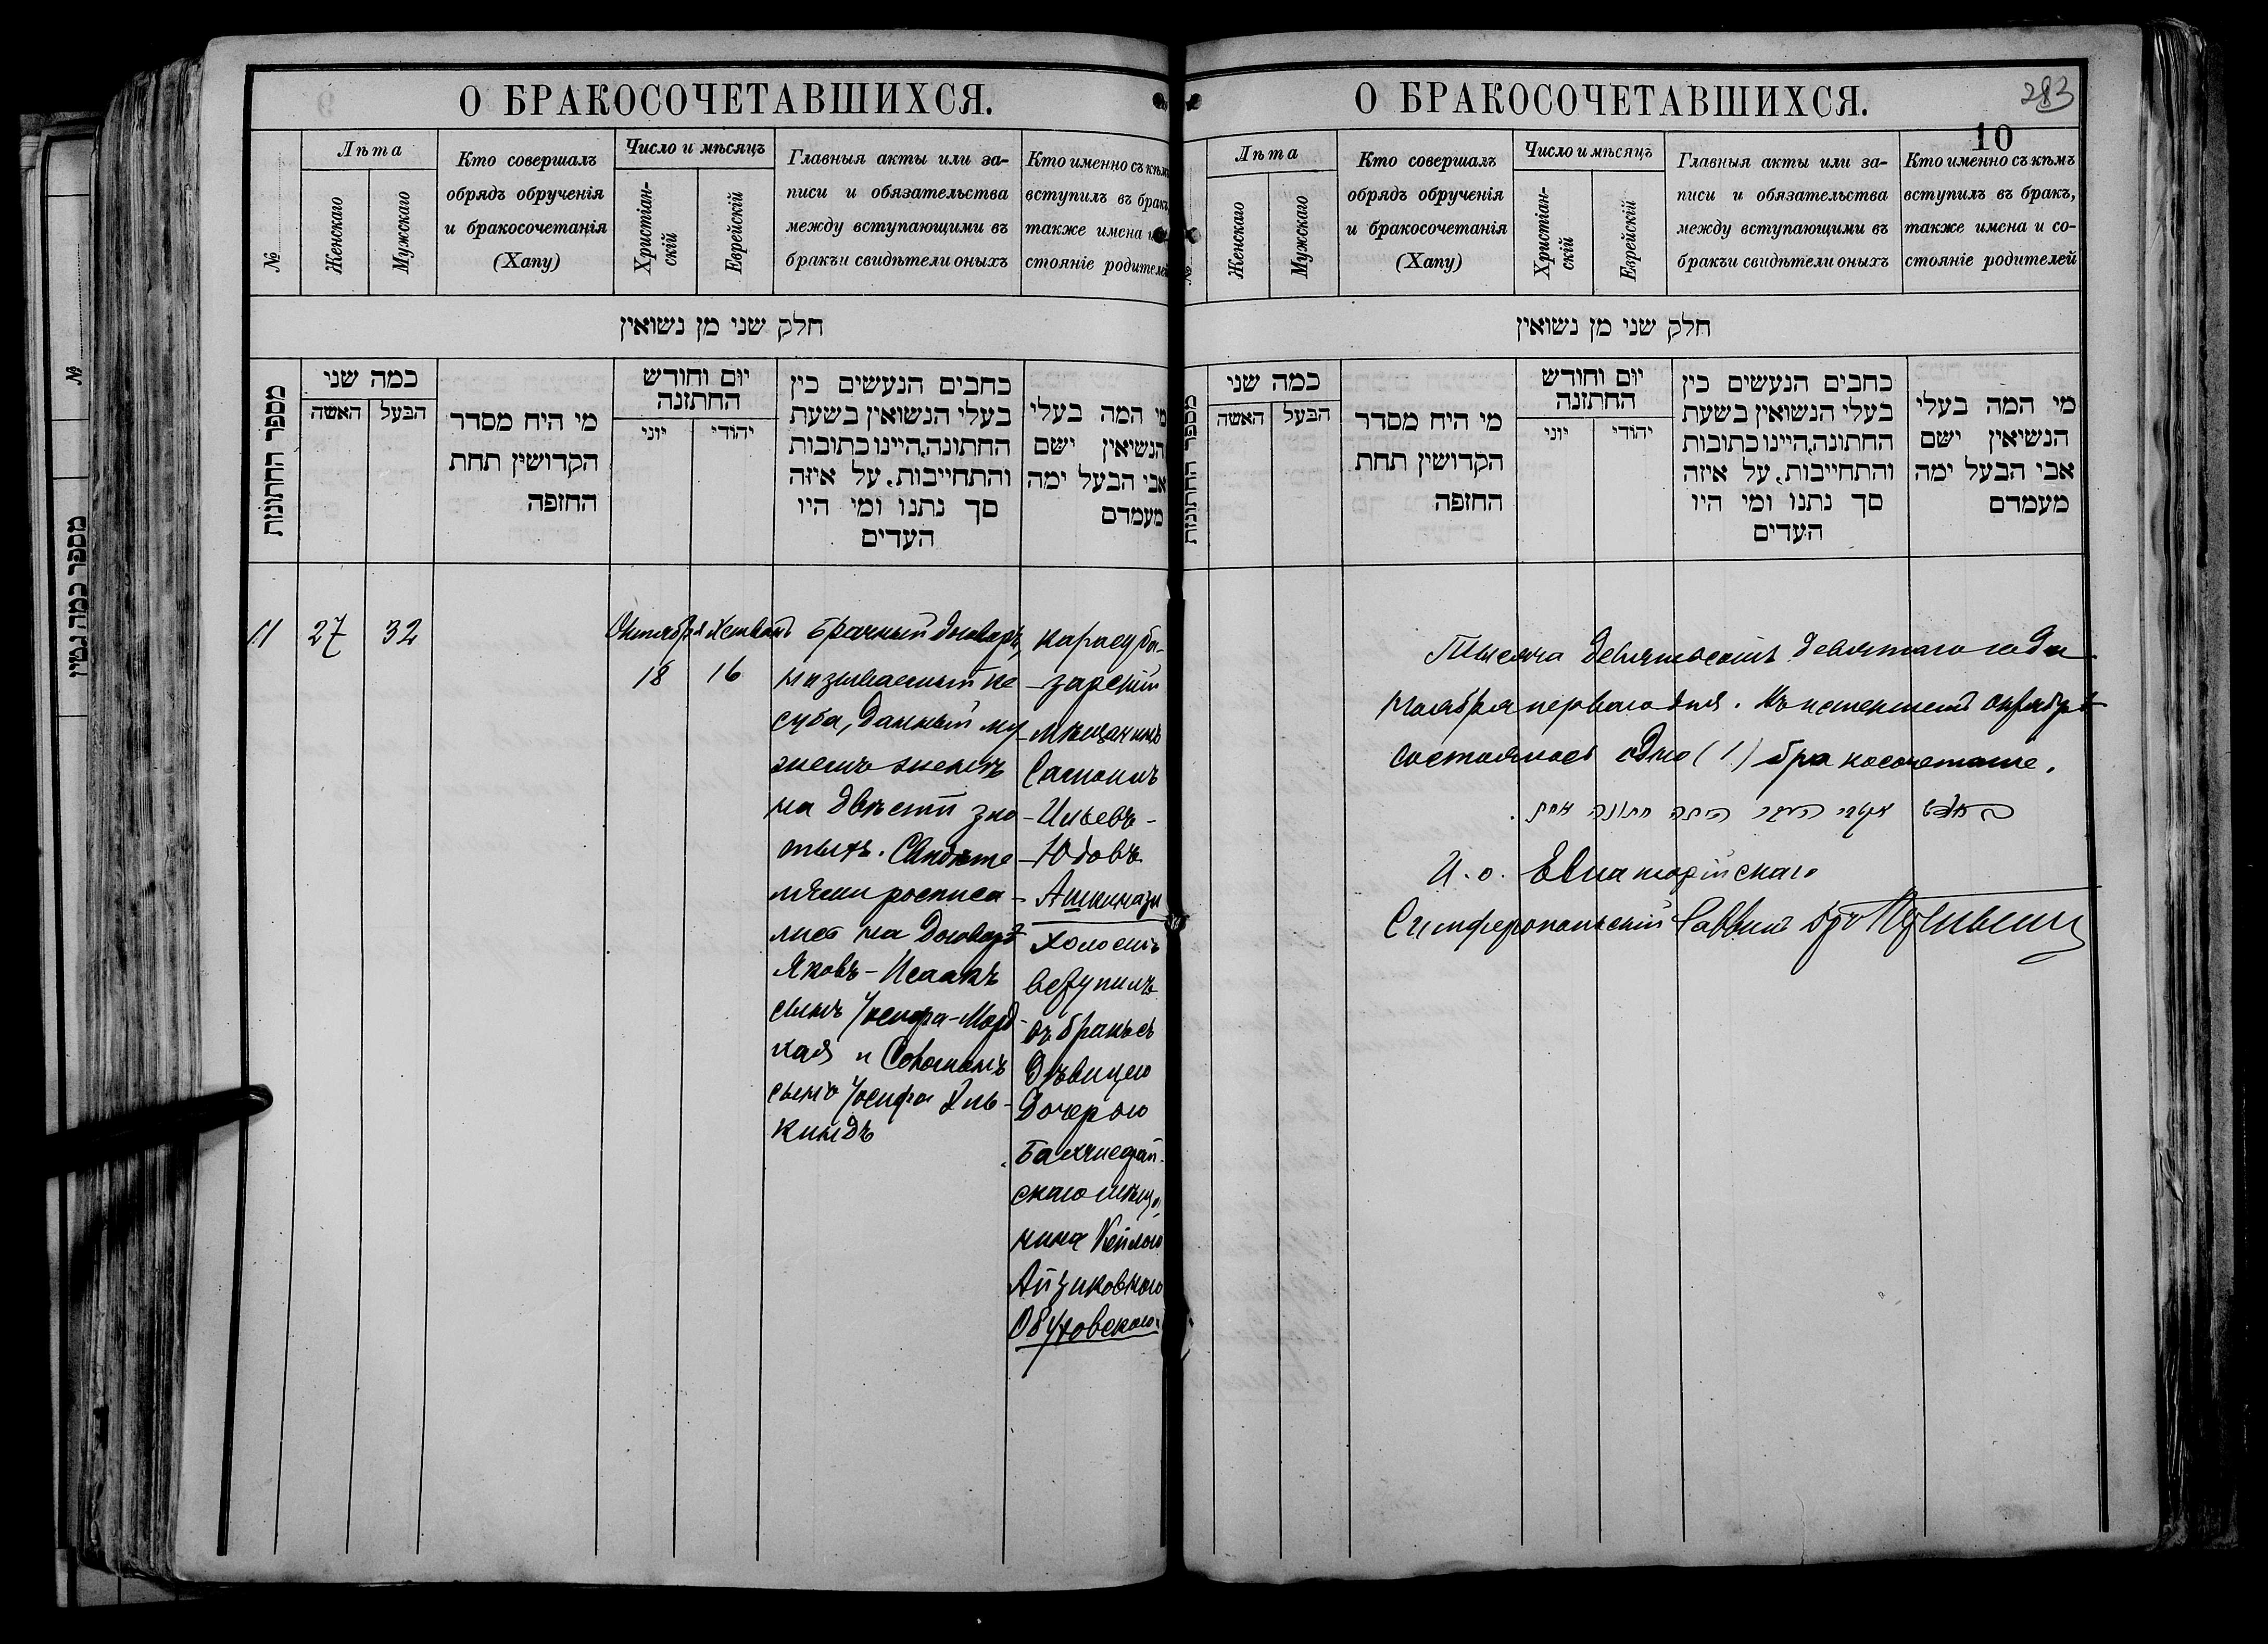 О БРАКОСОЧЕТАВШИХСЯ.
№
Лѣта
Женскаго
Мужскаго
Кто совершалъ
обрядъ обрученія
и бракосочетанія
(Хапу)
Число и мѣсяцъ
Христіан-
скій
Еврейскій
Главныя акты или за-
писи и обязательства
между вступающими въ
бракъи свидѣтели оныхъ
Кто именно съ кѣмъ
вступилъ въ бракъ,
также имена и
стояніе родителей
חלק שני מן נשואין
מספר החתונות
כמה שני
האשה
הבעל
מי היח מסדר
הקדושין תחת
החופה
יום וחודש
החתונה
יוני
יהודי
כתבים הנעשים בין
בעלי הנשואין בשעת
החתונה,היינו כתובות
והתחייבות, על איזה
סך נתנו ומי היו
העדים
מי המה בעלי
הנשיאין ישם
אבי הבעל ימה
מעמדם
11
27
32
Октября
18
Хешванъ
16
Брачный договоръ,
называемый ке
суба, данный му
жемъ женѣ
на двѣсти зло
тыхъ. Свидѣте
лями росписа
лись на договорѣ
Яковъ-Исаакъ
сынъ Іосифа-Морд
хая и Соломонъ
сынъ Іосифа
киндъ
Карасуба-
-зарскій
мѣщанинъ
Самоилъ
-Ильевъ-
-Юдовъ
Ашкинази
Холостъ
вступилъ
въ бракъ съ
дѣвицею
дочерью
Бахчисарай-
скаго мѣща
нина
Айзиковного
Обуховского
О БРАКОСОЧЕТАВШИХСЯ.
283
10
№
Лѣта
Женскаго
Мужскаго
Кто совершалъ
обрядъ обрученія
и бракосочетанія
(Хапу)
Число и мѣсяцъ
Христіан-
скій
Еврейскій
Главныя акты или за-
писи и обязательства
между вступающими въ
бракъи свидѣтели оныхъ
Кто именно съ кѣмъ
вступилъ въ бракъ,
также имена и со-
стояніе родителей
חלק שני מן נשואין
מספר החתונות
כמה שני
האשה
הבעל
מי היח מסדר
הקדושין תחת
החופה
יום וחודש
החתונה
יוני
יהודי
כתבים הנעשים בין
בעלי הנשואין בשעת
החתונה,היינו כתובות
והתחייבות, על איזה
סך נתנו ומי היו
העדים
מי המה בעלי
הנשיאין ישם
אבי הבעל ימה
מעמדם
Тысяча девятьсотъ девятаго года
ноября перваго дня. Въ истекшемъ октябрѣ
состоялось одно (1) бракосочетаніе.
העבר היתה חתונה אחת.
И. о. Евпаторійскаго
Симферопольскій Раввинъ